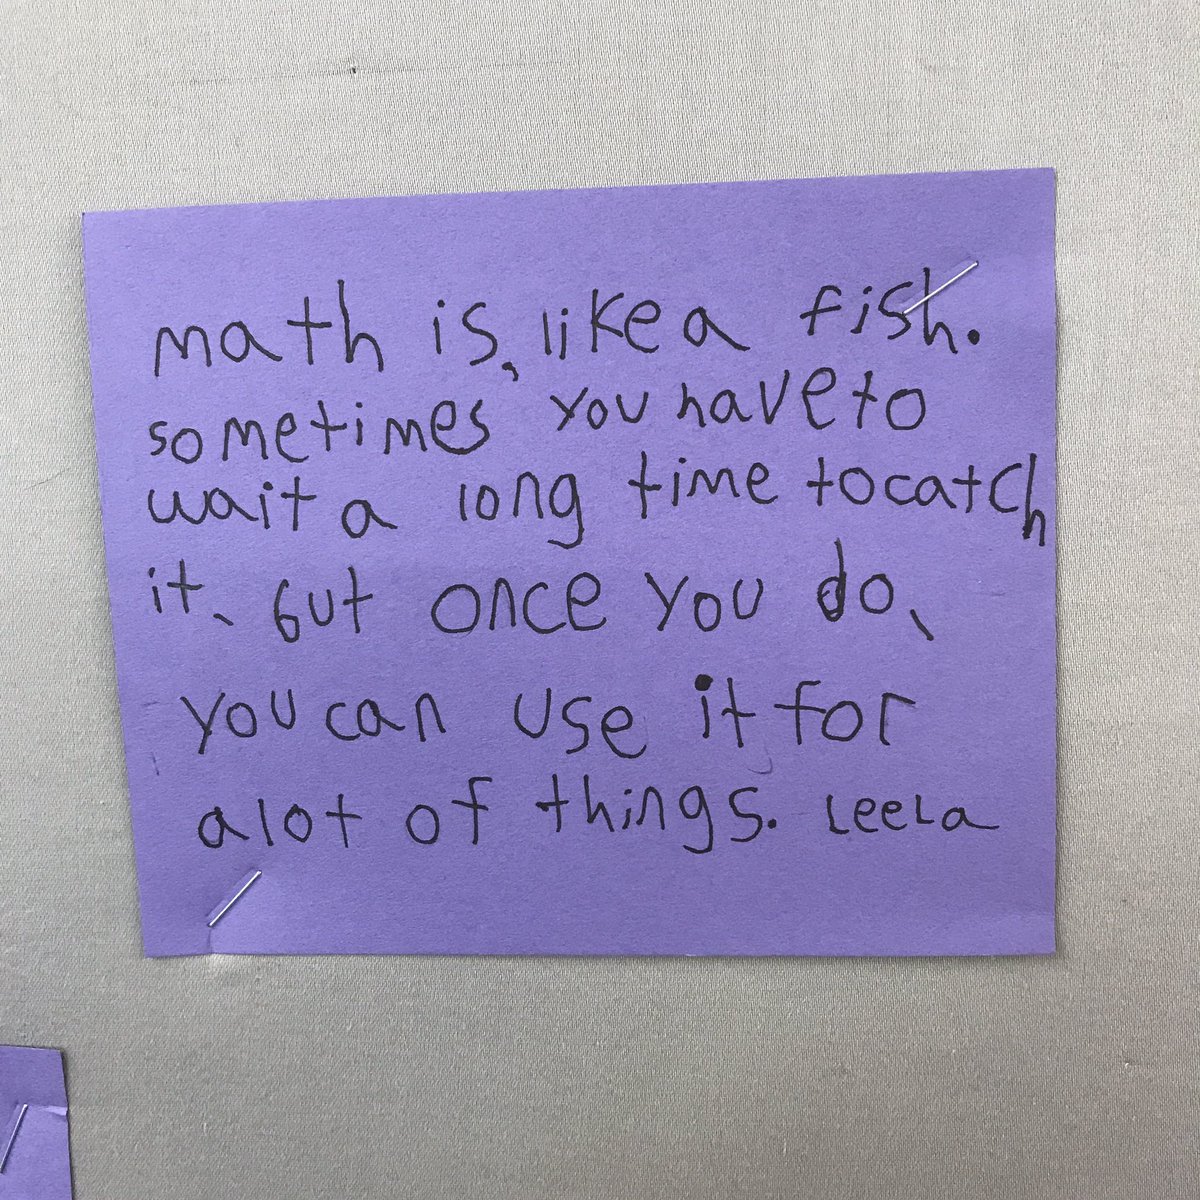 math is, like a fish.
sometimes you have to
wait a long time to catch
it, but once you do,
you can use it for
alot of things. Leela